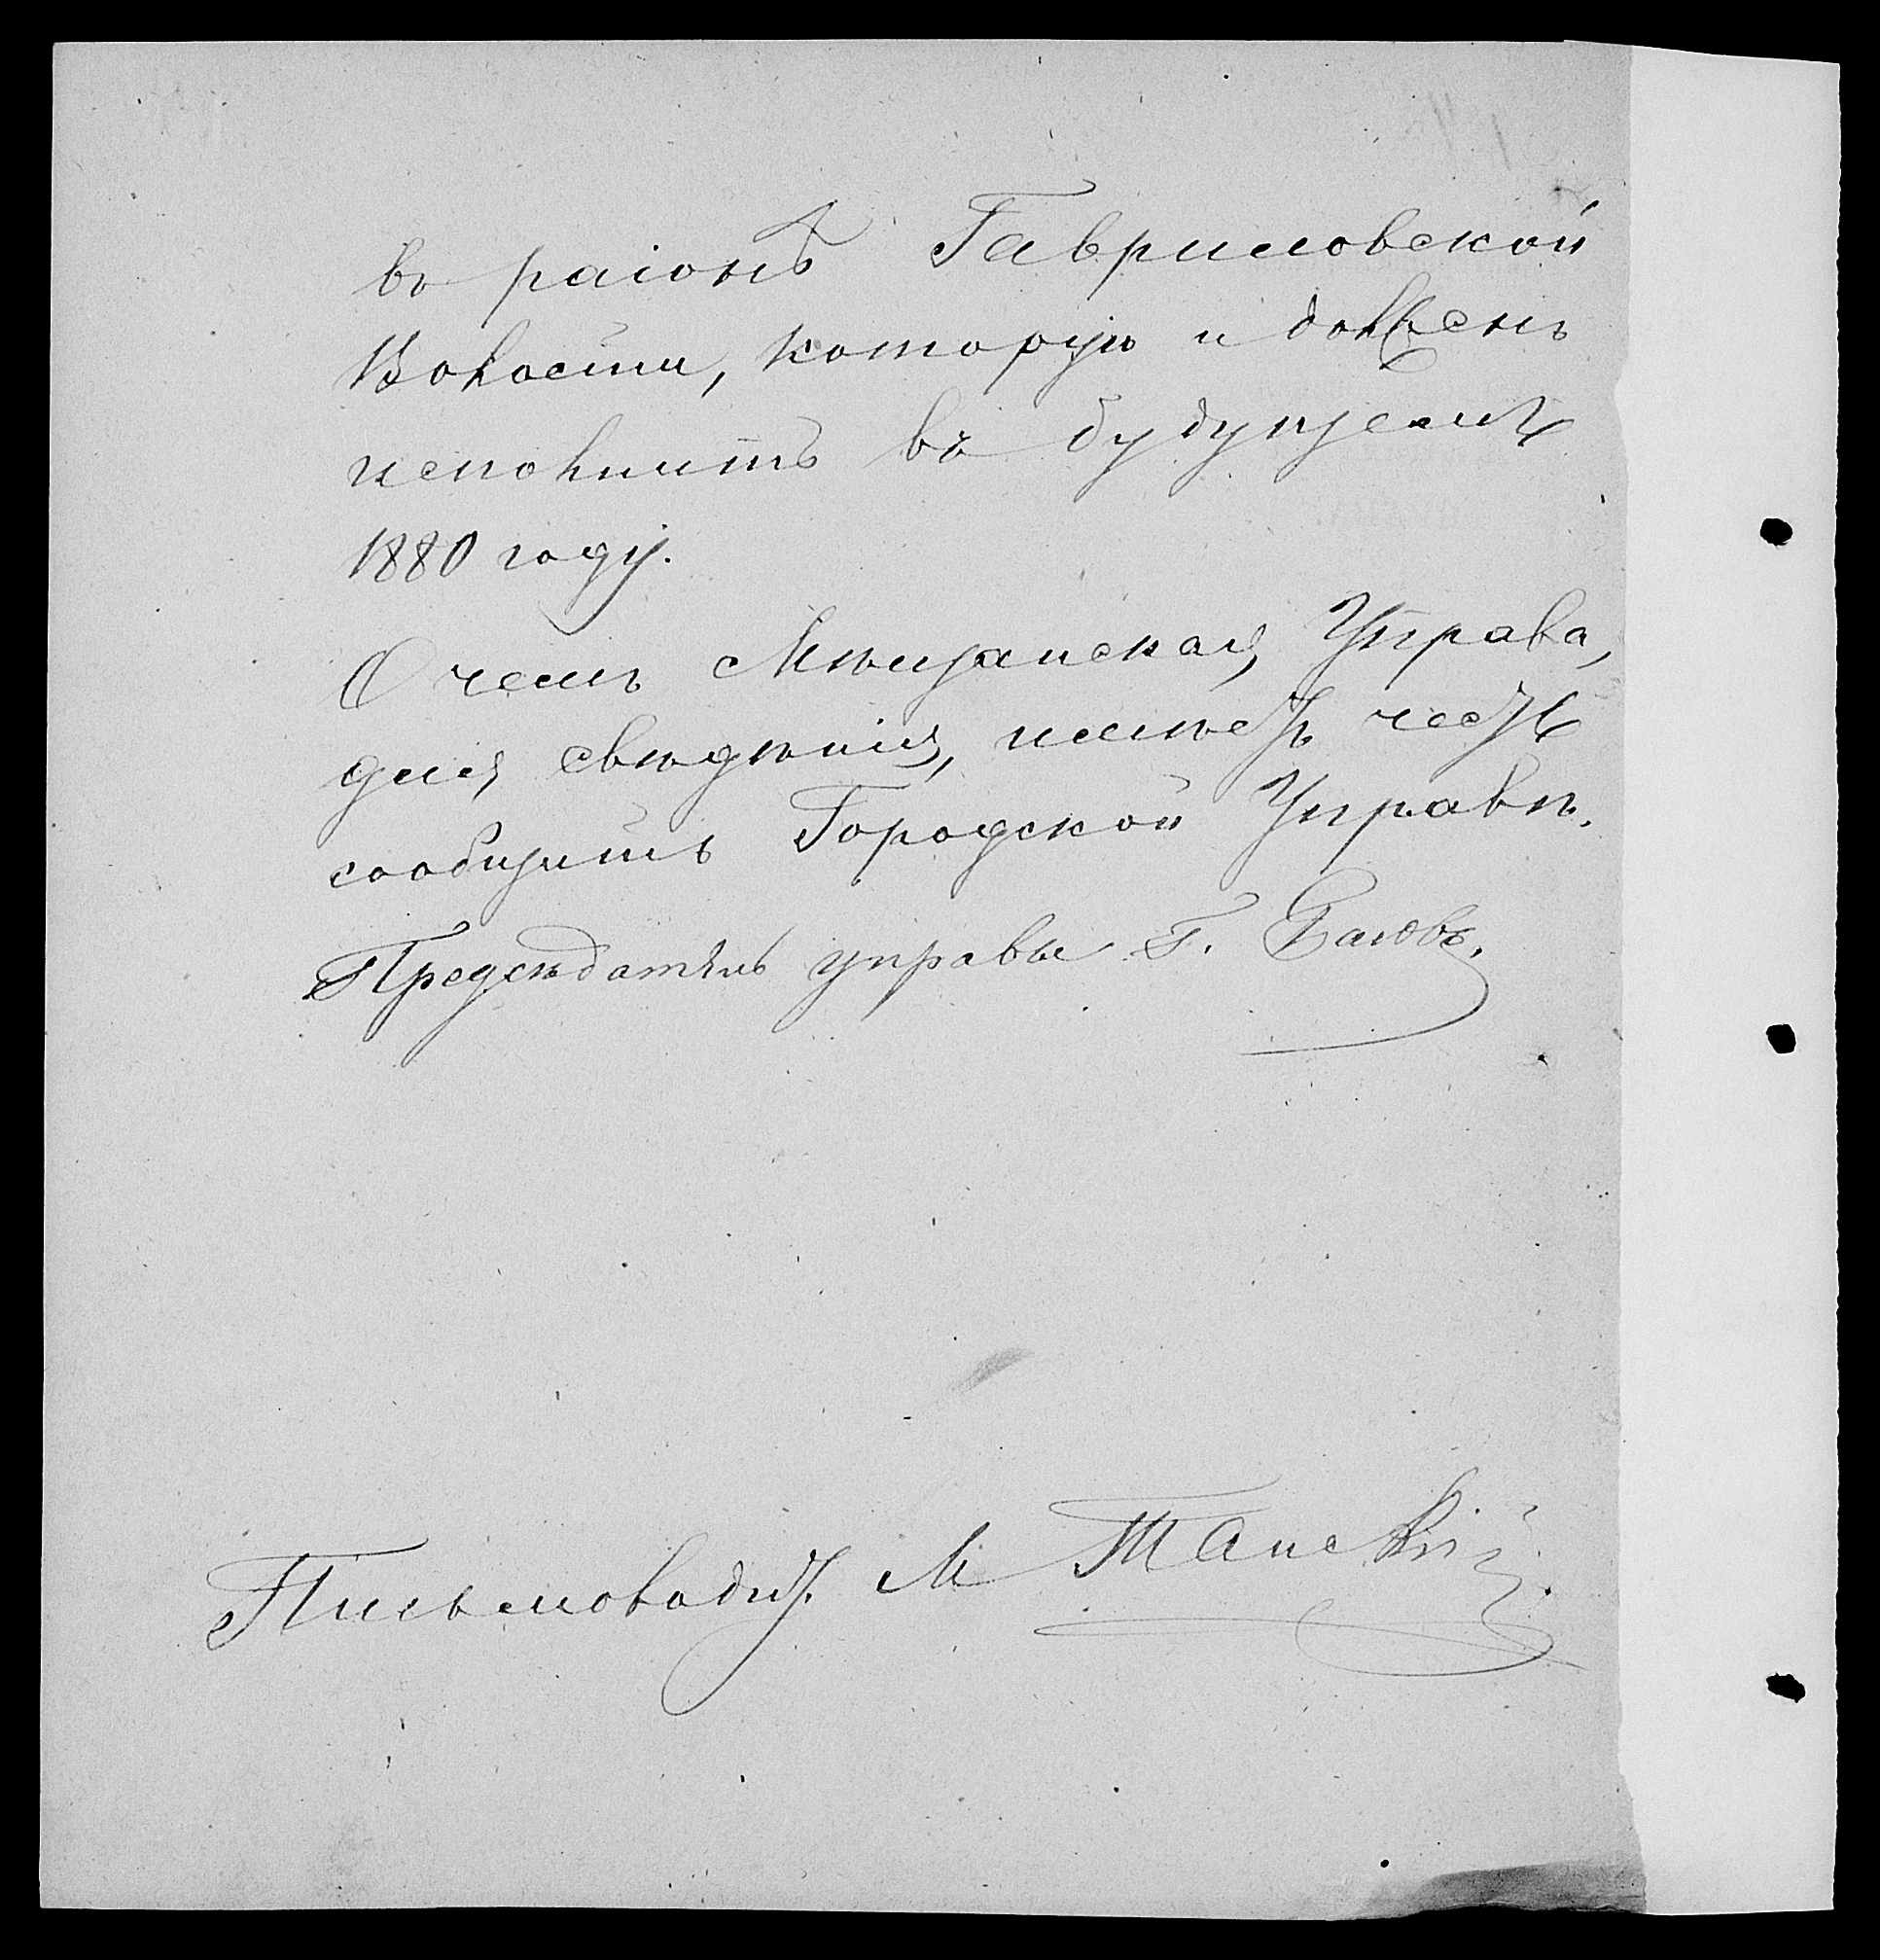 въ районѣ Гавриловской
Волости, которую и долженъ
исполнить въ будущемъ
1880 году.
О чемъ Мѣщанская Управа,
для свѣденія, имѣетъ честь
сообщить Городской Управѣ.
Председатель управы Г.
Письмоводит. М Танскій